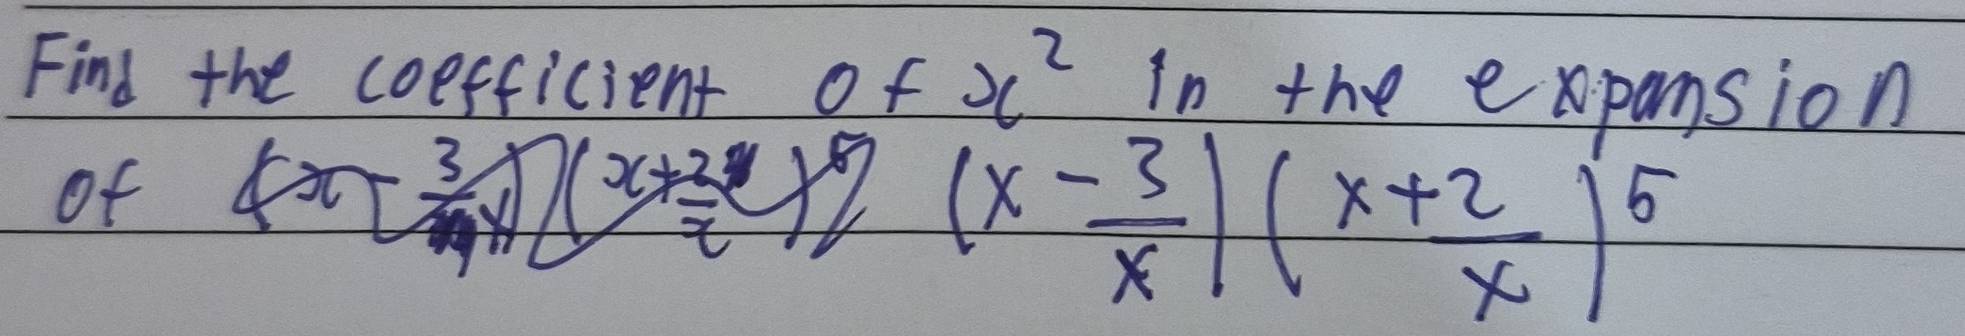 Find the coefficient of x² in the expansion
of (x - 3/x)(x + 2/x)⁵